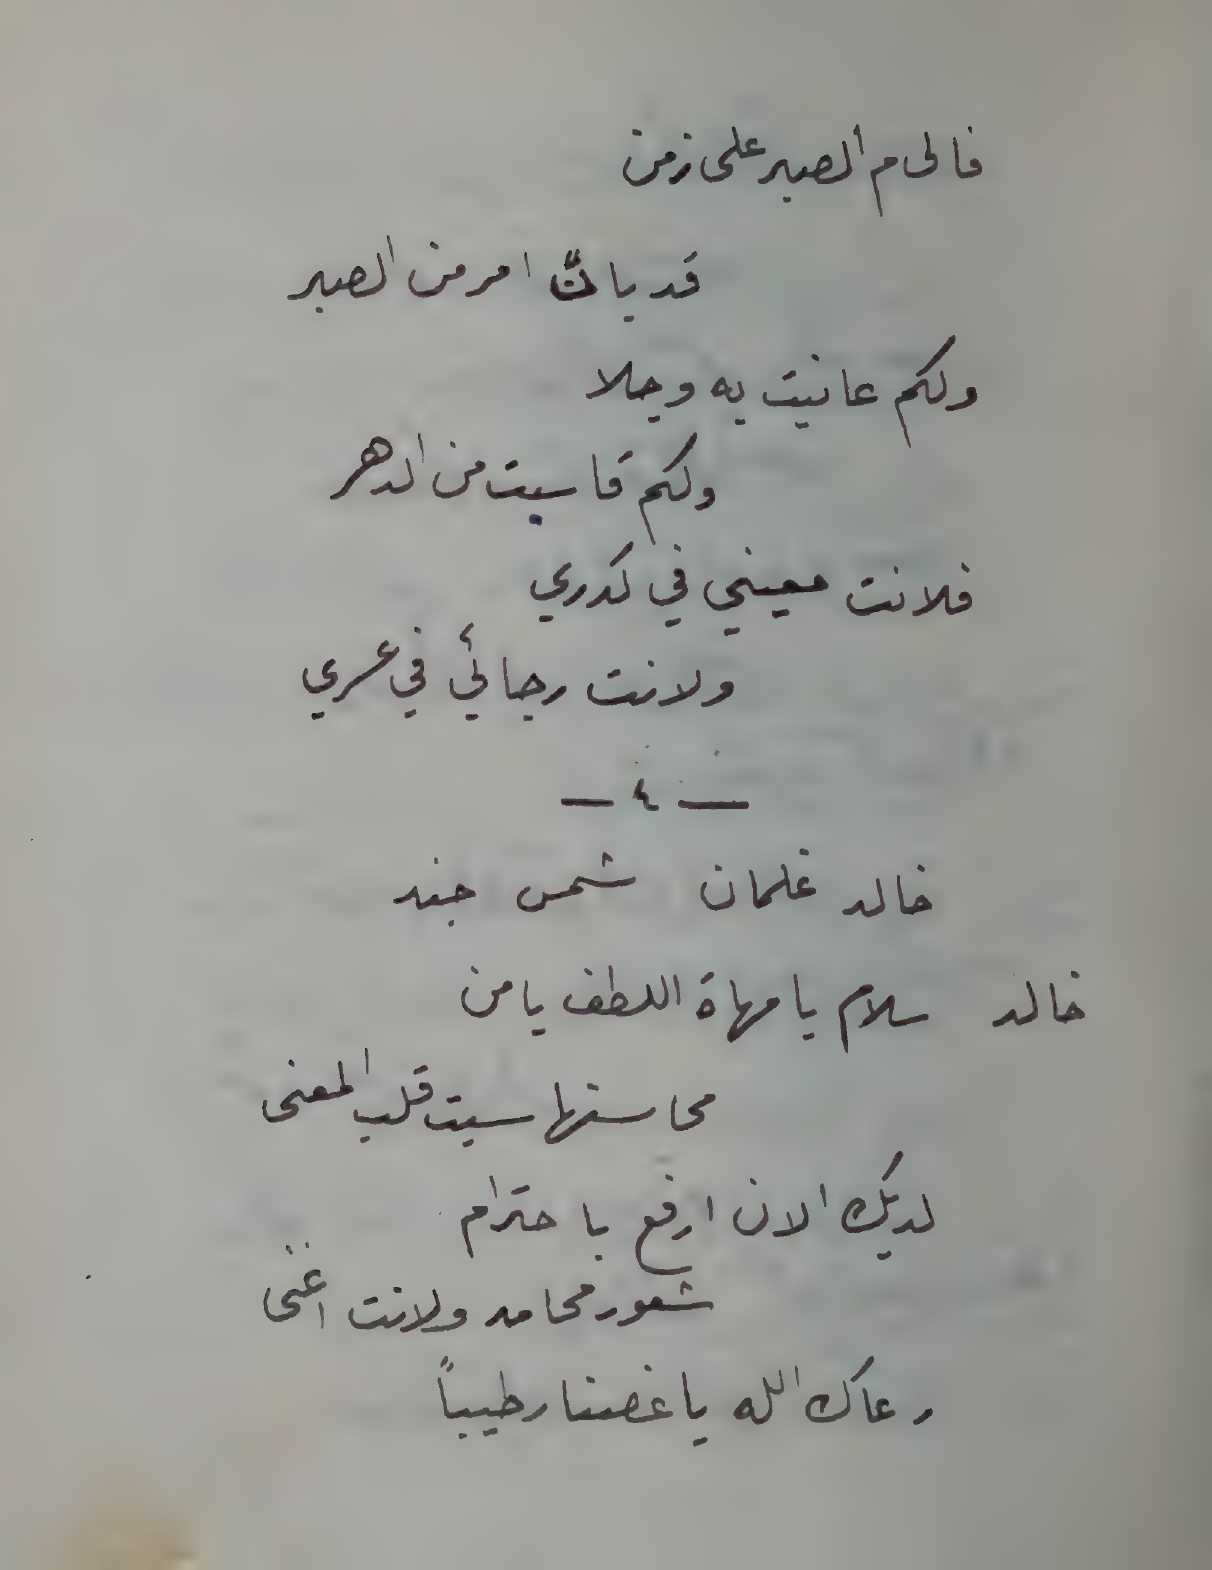 فالى م الصبر على زمن
قد بات امر من الصبر
ولكم عانيت به وجلا
ولكم قاسيت من الدهر
فلانت معيني في كدري
ولانت رجائي في عسري
— ٤ —
خالد غلمان شمس جند
خالد سلام يا مهاة اللطف يا من
محاسنها سبت قلب المعنى
لديك الان ارفع باحترام
شعور محامد ولانت اغنى
رعاك الله يا غصنا رطيباً